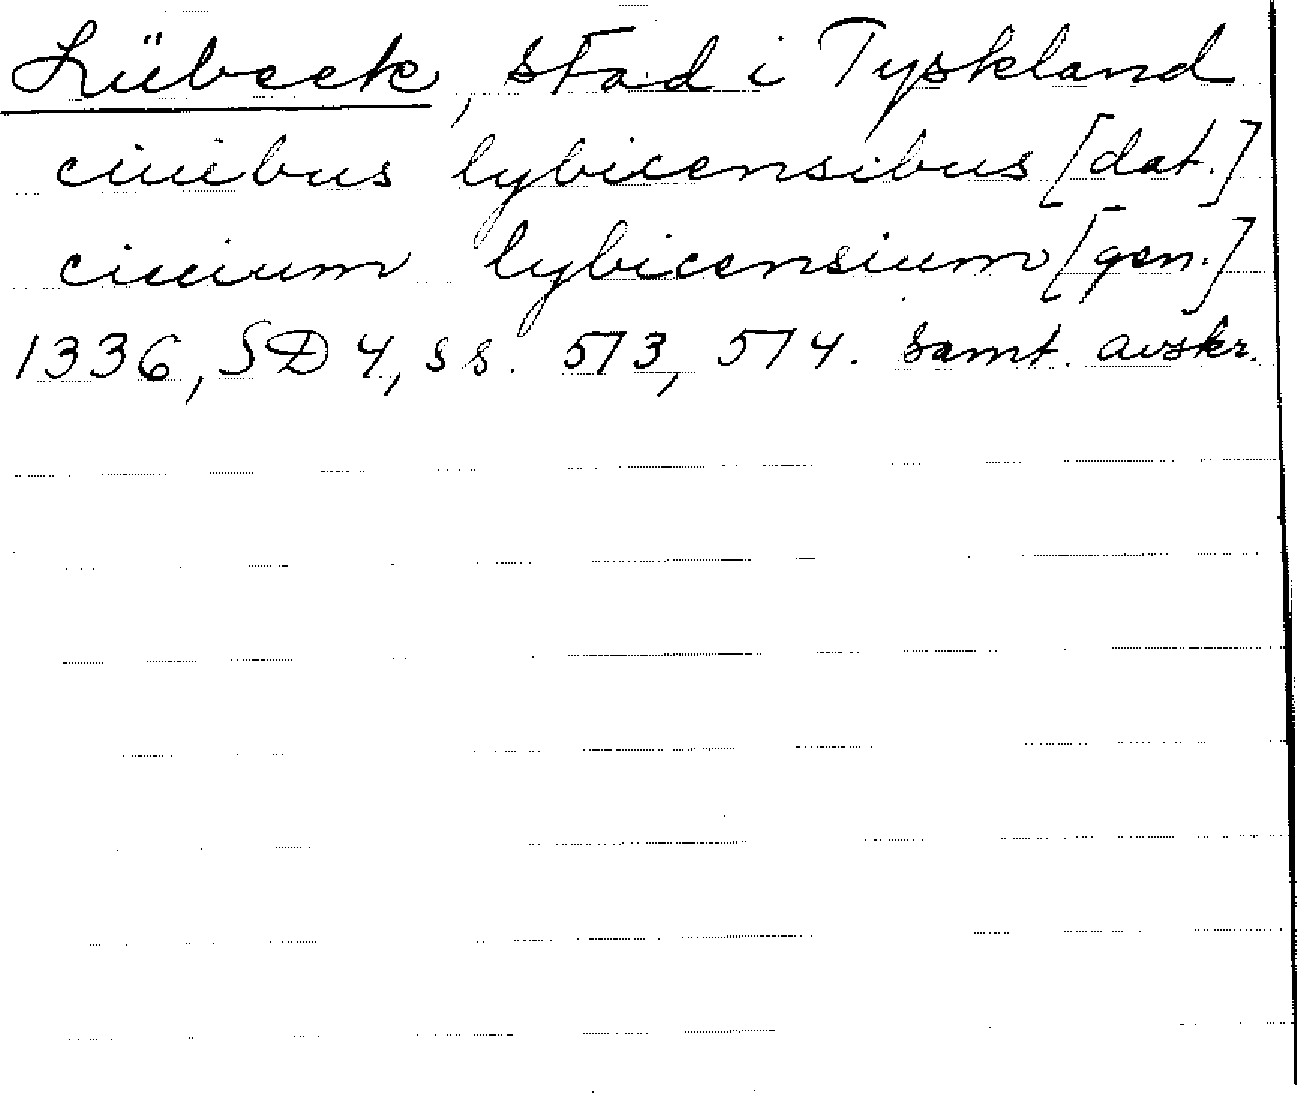 Lübeck, stad i Tyskland
ciuibus lybicensibus [dat.]
ciuium lybicensium [gen.]
1336, SD 4, ss. 573, 574. Samt. avskr.